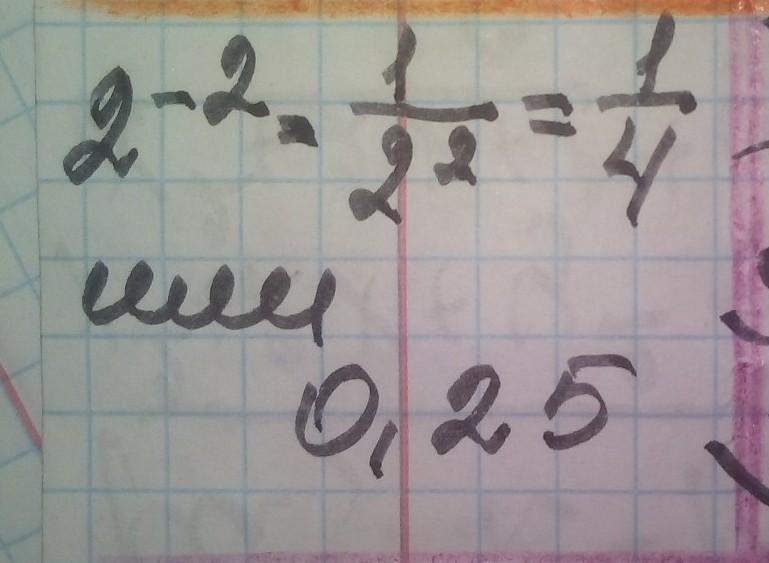 2⁻² = 1/2² = 1/4
или
0,25